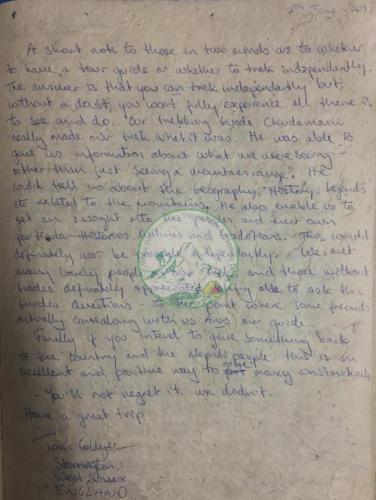 4th June
A short note to those in two minds as to whether
to have a tour guide or whether to trek independently.
The answer is that you can trek independently but
without a doubt, you wont fully experience all there is
to see and do. Our trekking guide Chudamani
really made our trek what it was. He was able to
give us information about what we were seeing -
other than just seeing a mountain range! He
could tell us about the Geography, History, legends
etc related to the mountains. He also enable us to
get an insight into the and their own
particular and traditions. This would
definately not be possible independently. We met
many lovely people and those without
Guides definately able to ask the
Guides Questions to the point where some friends
actually came along with us and our guide.
Finally if you intend to give something back
to the country and the Nepali people this is an
excellent and positive way to money constructively
- Ya'll not regret it. we didn't.
Have a great trip
Storrington,
West Sussex
ENGLAND